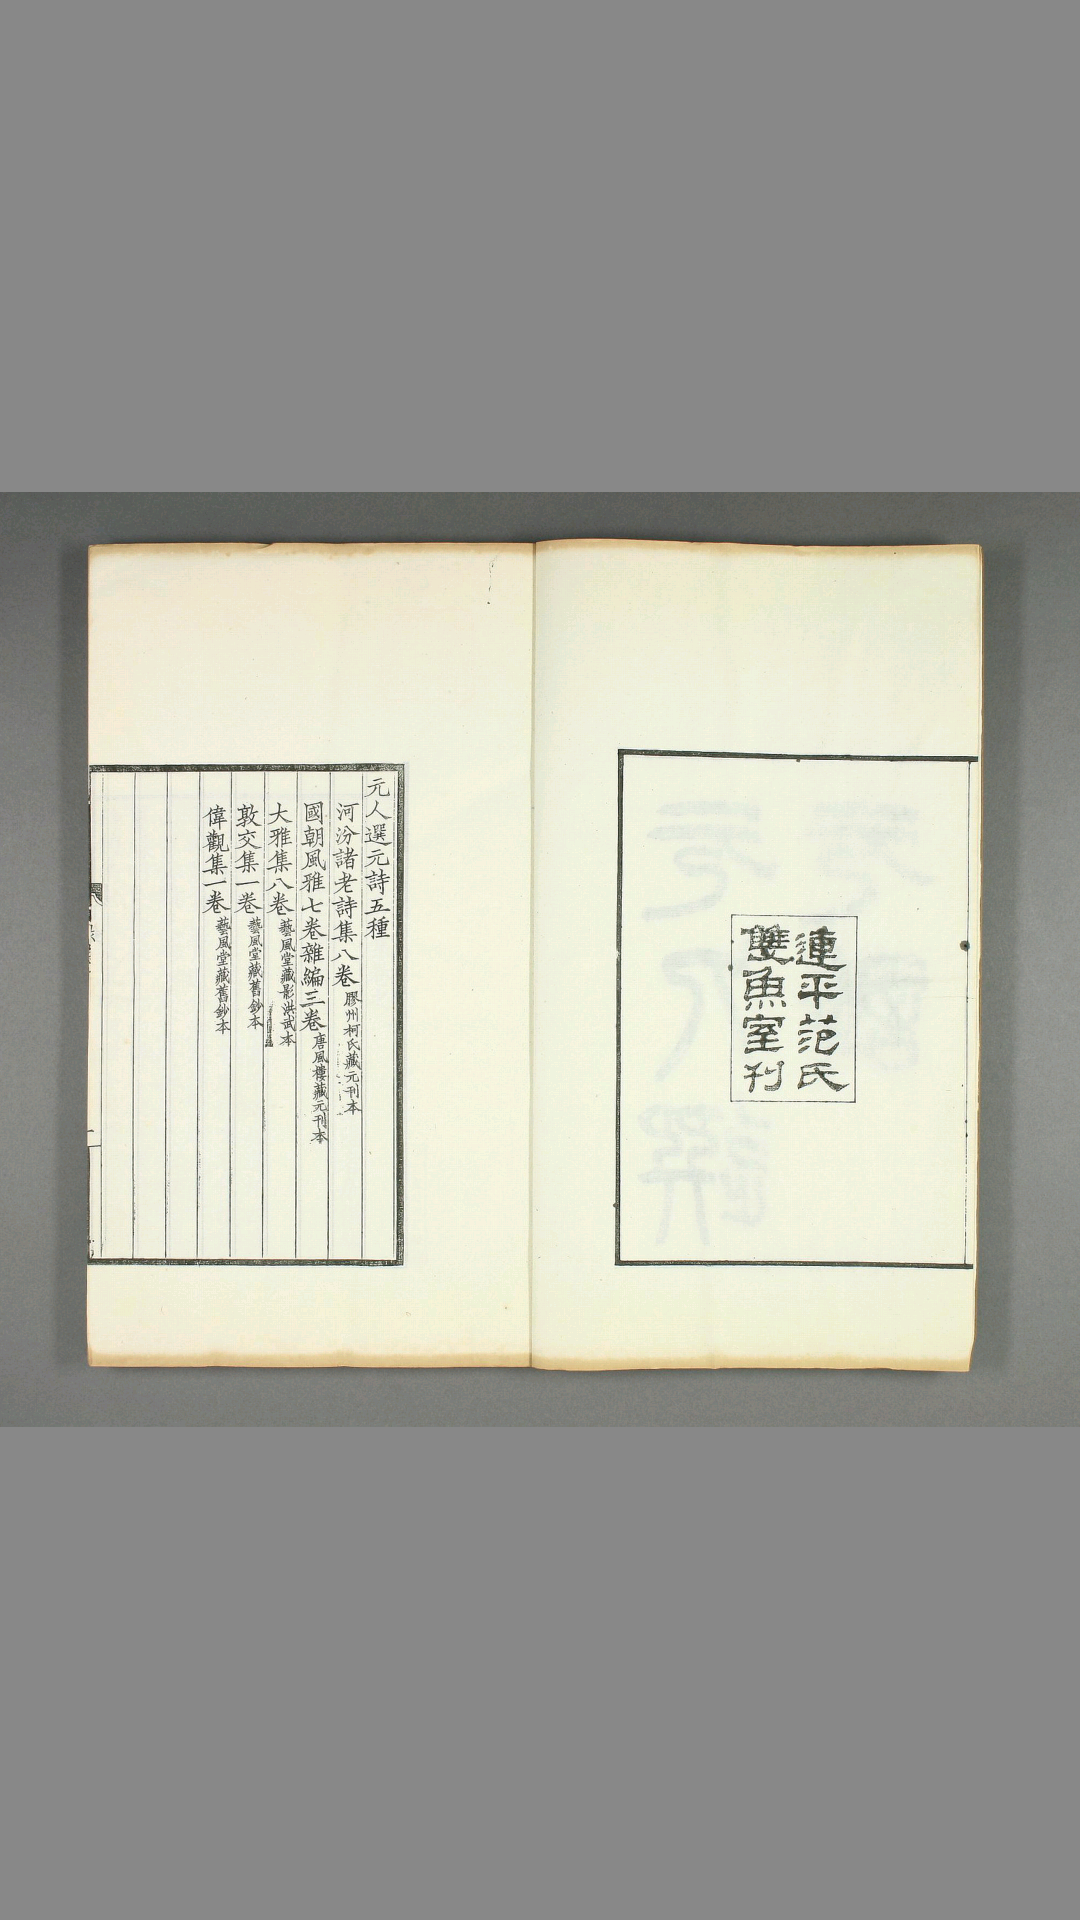 連平范氏
雙魚室刊
元人選元詩五種
河汾諸老詩集八卷 膠州柯氏藏元刊本
國朝風雅七卷雜編三卷 唐風樓藏元刊本
大雅集八卷 藝風堂藏影洪武本
敦交集一卷 藝風堂藏舊鈔本
偉觀集一卷 藝風堂藏舊鈔本